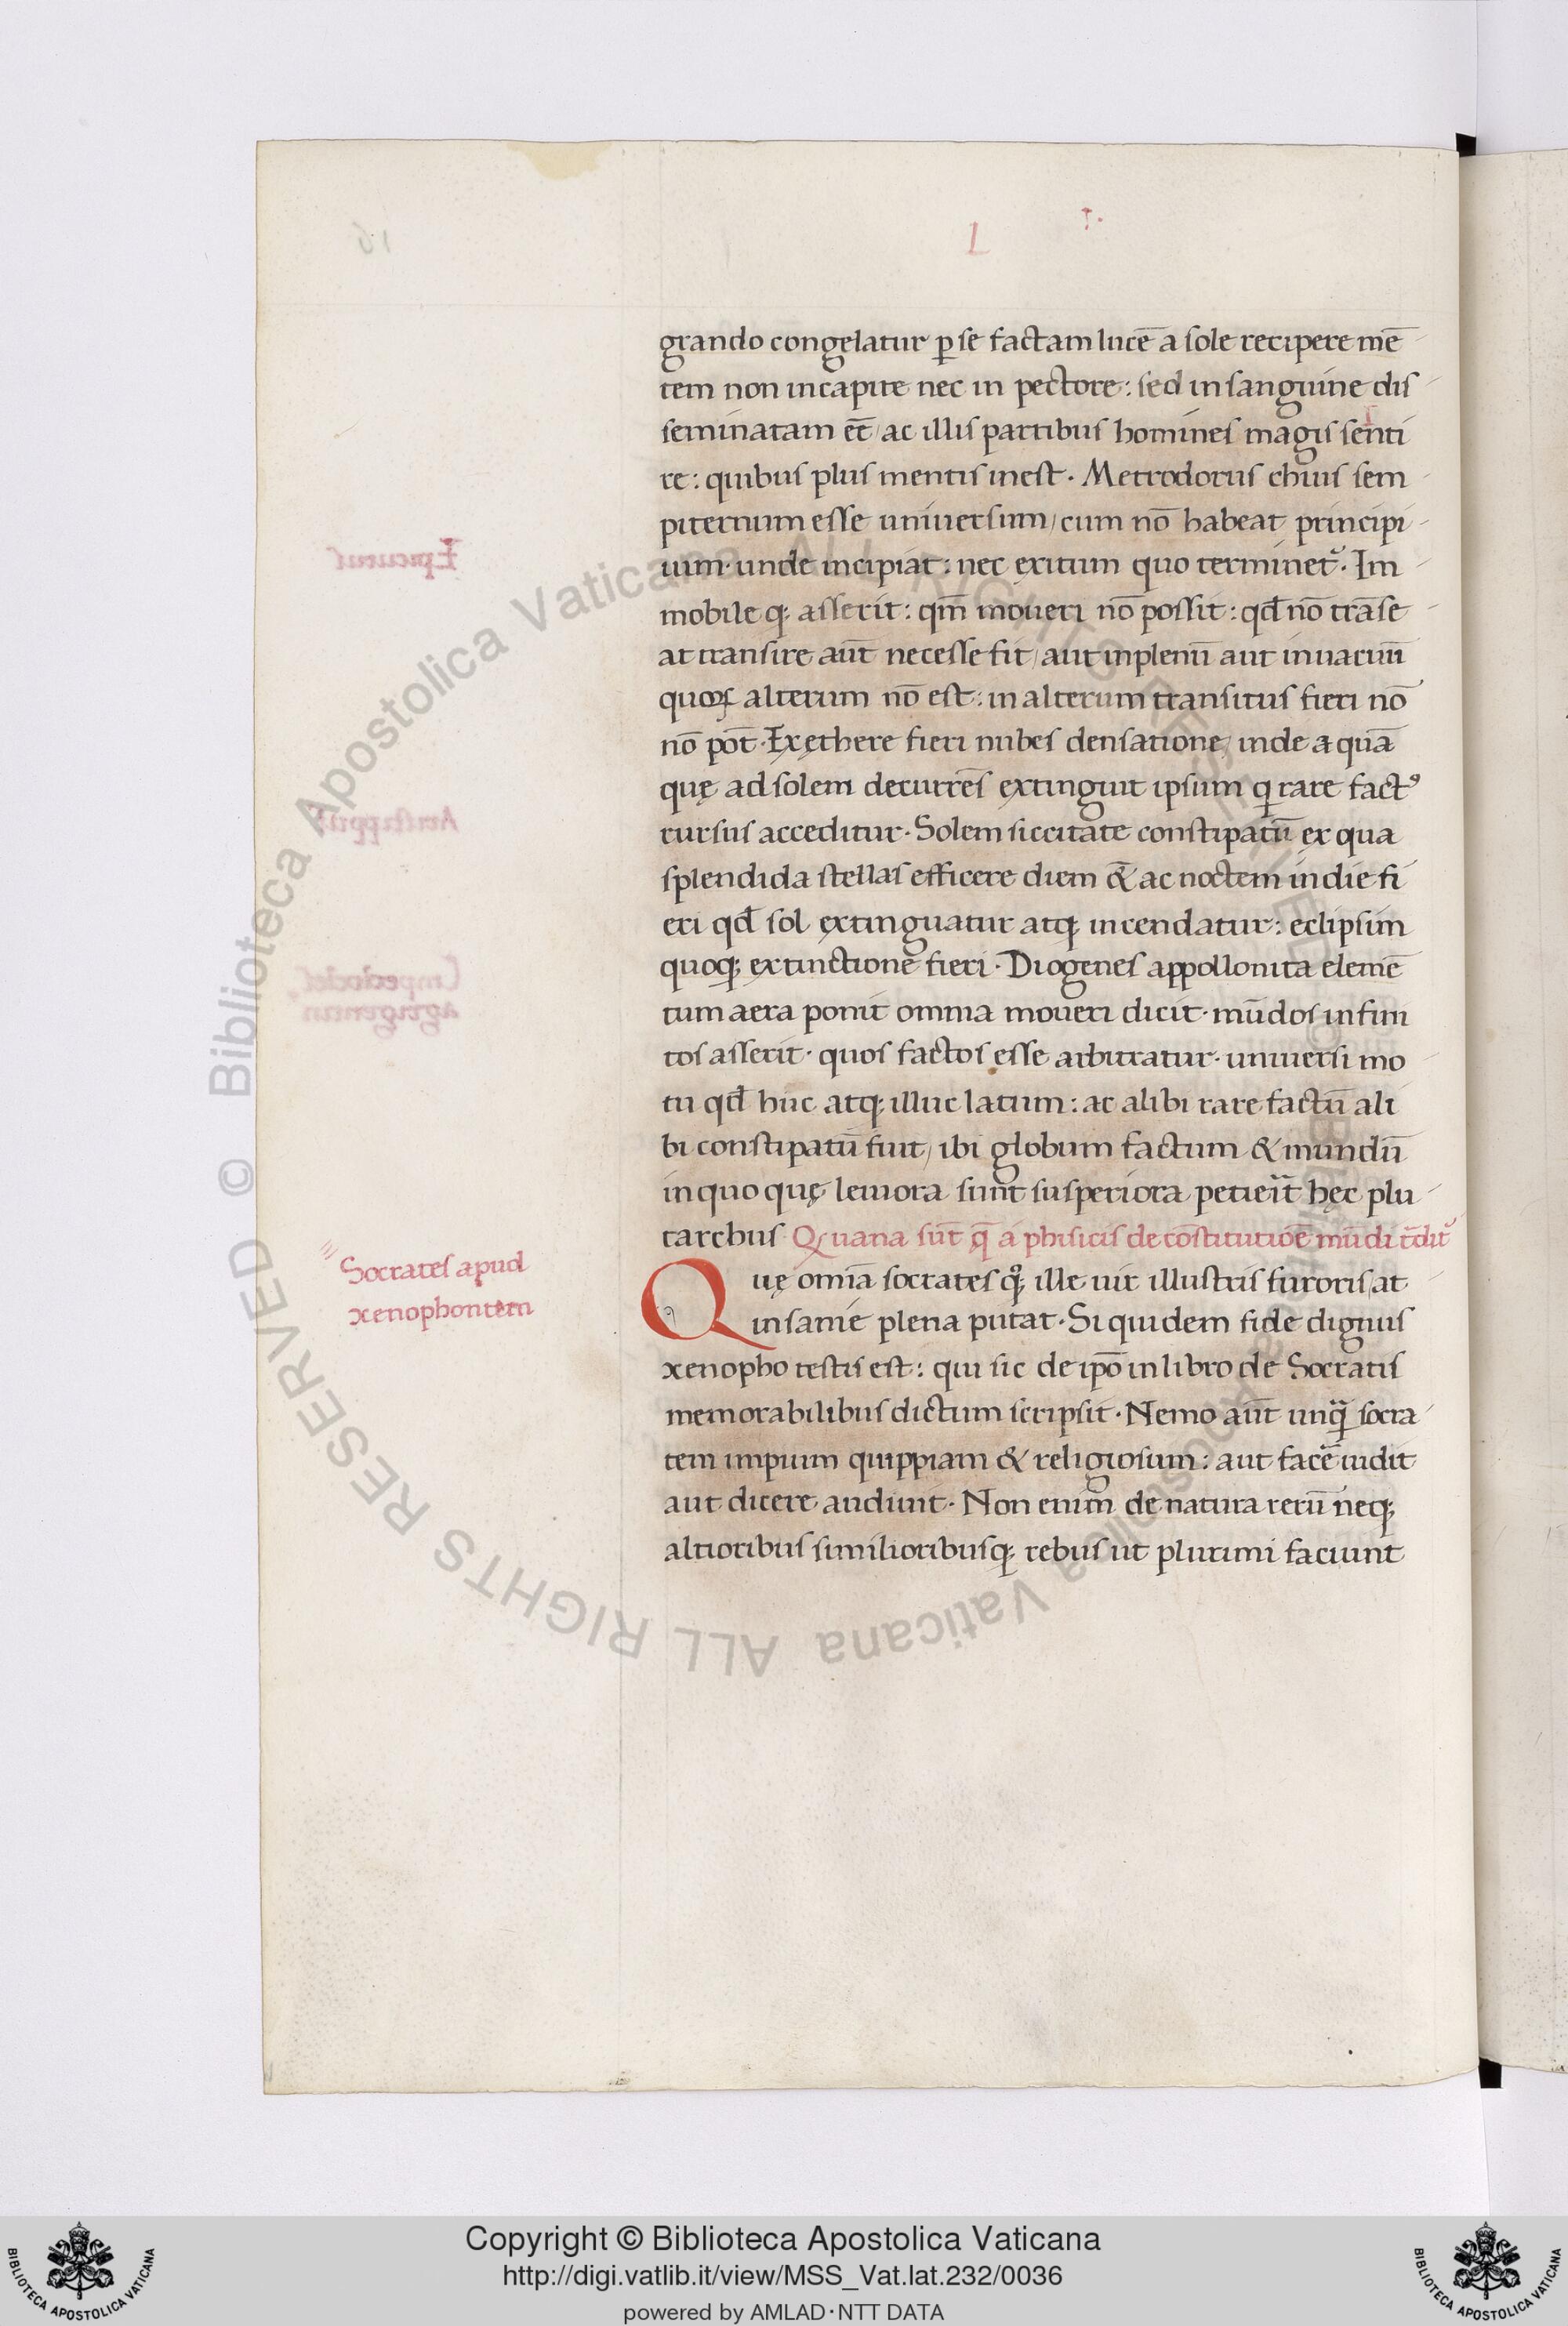 L I.
grando congelatur ꝑ se factam lucē a sole recipere mē
tem non in capite nec in pectore: sed in sanguine dis
seminatam eē̄t/ ac illis partibus homines magis senti
re: quibus plus mentis inest. Metrodorus chius sem
piternum esse uniuersum/ cum nō habeat principi
uim. unde incipiat: nec exitum quo terminet᷑. Im
mobile q; asserit: qm̄ moueri nō possit: qđ nō trāse
at transire aūt necesse sit/ aut in plenū aut in uacuū
quoꝝ alterum nō est: in alterum transitus fieri nō
nō pōt. Ex ęthere fieri nubes densatione/ inde a quā
quę ad solem decurrēs extinguit ipsum q rare fact⁹
rursus acceditur. Solem siccitate constipatū ex qua
splendida stellas efficere diem &̄ ac noctem in die fi
eri qđ sol extinguatur atq; incendatur: eclipsim
quoq; extinctione fieri. Diogenes appollonita elemē
tum aera ponit omnia moueri dicit. mūdos infini
tos asserit. quos factos esse arbitratur. uniuersi mo
tu qđ huc atq; illuc latum: ac alibi rare factū ali
bi constipatū fuit/ ibi globum factum & mundū
in quo quę leuiora sunt susperiora petieit̄ hęc plu
tarchus Quana sūt q̄ a phisicis de cōstitutiōe mūdi t̄dit᷑
Socrates apud
xenophontem
Quę omīa socrates qͦ; ille uir illustris furoris at
insanie plena putat. Si quidem fide dignus
xenopho testis est: qui sic de ipō in libro de Socratis
memorabilibus dictum scripsit. Nemo aūt unq̄ socra
tem impium quippiam & religiosum: aut facē uidit
aut dicere audiuit. Non enim de natura rerū neq;
altioribus similioribusq; rebus ut plurimi faciunt
© Biblioteca Apostolica Vaticana ALL RIGHTS RESERVED © Biblioteca Apostolica Vaticana ALL RIGHTS RESERVED
Copyright © Biblioteca Apostolica Vaticana
http://digi.vatlib.it/view/MSS_Vat.lat.232/0036
powered by AMLAD·NTT DATA
BIBLIOTECA APOSTOLICA VATICANA
BIBLIOTECA APOSTOLICA VATICANA